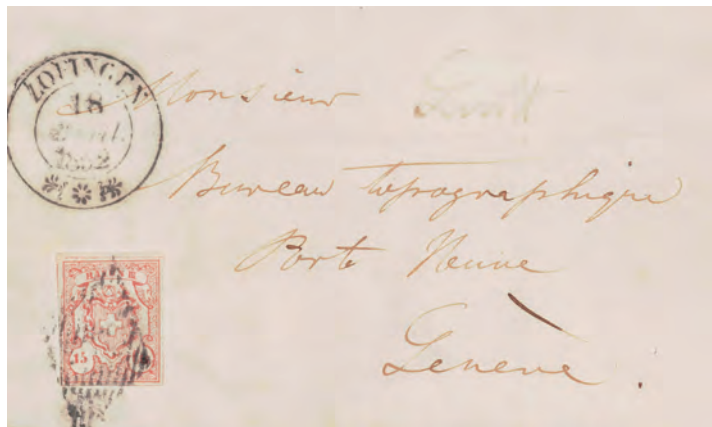 ZOFINGEN
18
1852
Monsieur
Bureau topographique
Porte Neuve
Genève.
15